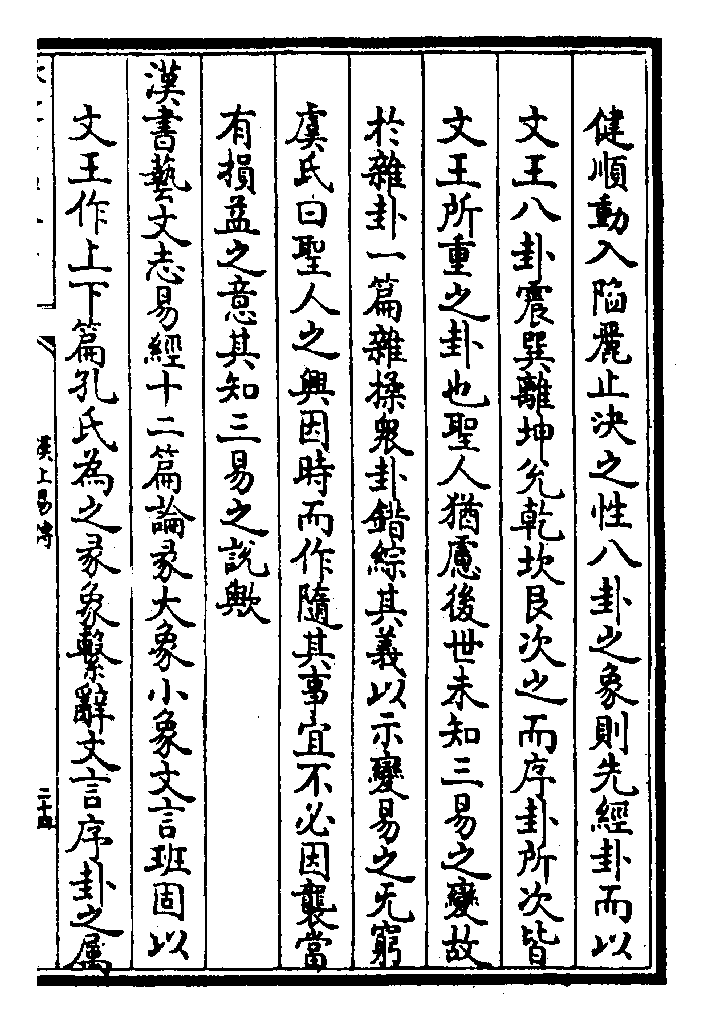 健順動入陷麗止決之性八卦之象則先經卦而以
文王八卦震巽離坤兊乾坎艮次之而序卦所次皆
文王所重之卦也聖人猶慮後世未知三易之變故
於雜卦一篇雜揉衆卦錯綜其義以示變易之无窮
虞氏曰聖人之興因時而作隨其事宜不必因襲當
有損益之意其知三易之說歟
漢書藝文志易經十二篇論彖大象小象文言班固以
文王作上下篇孔氏為之彖象繫辭文言序卦之屬
漢上易傳
二十四